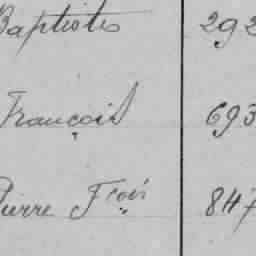 Baptiste 292
François 693
Pierre Fçois 847